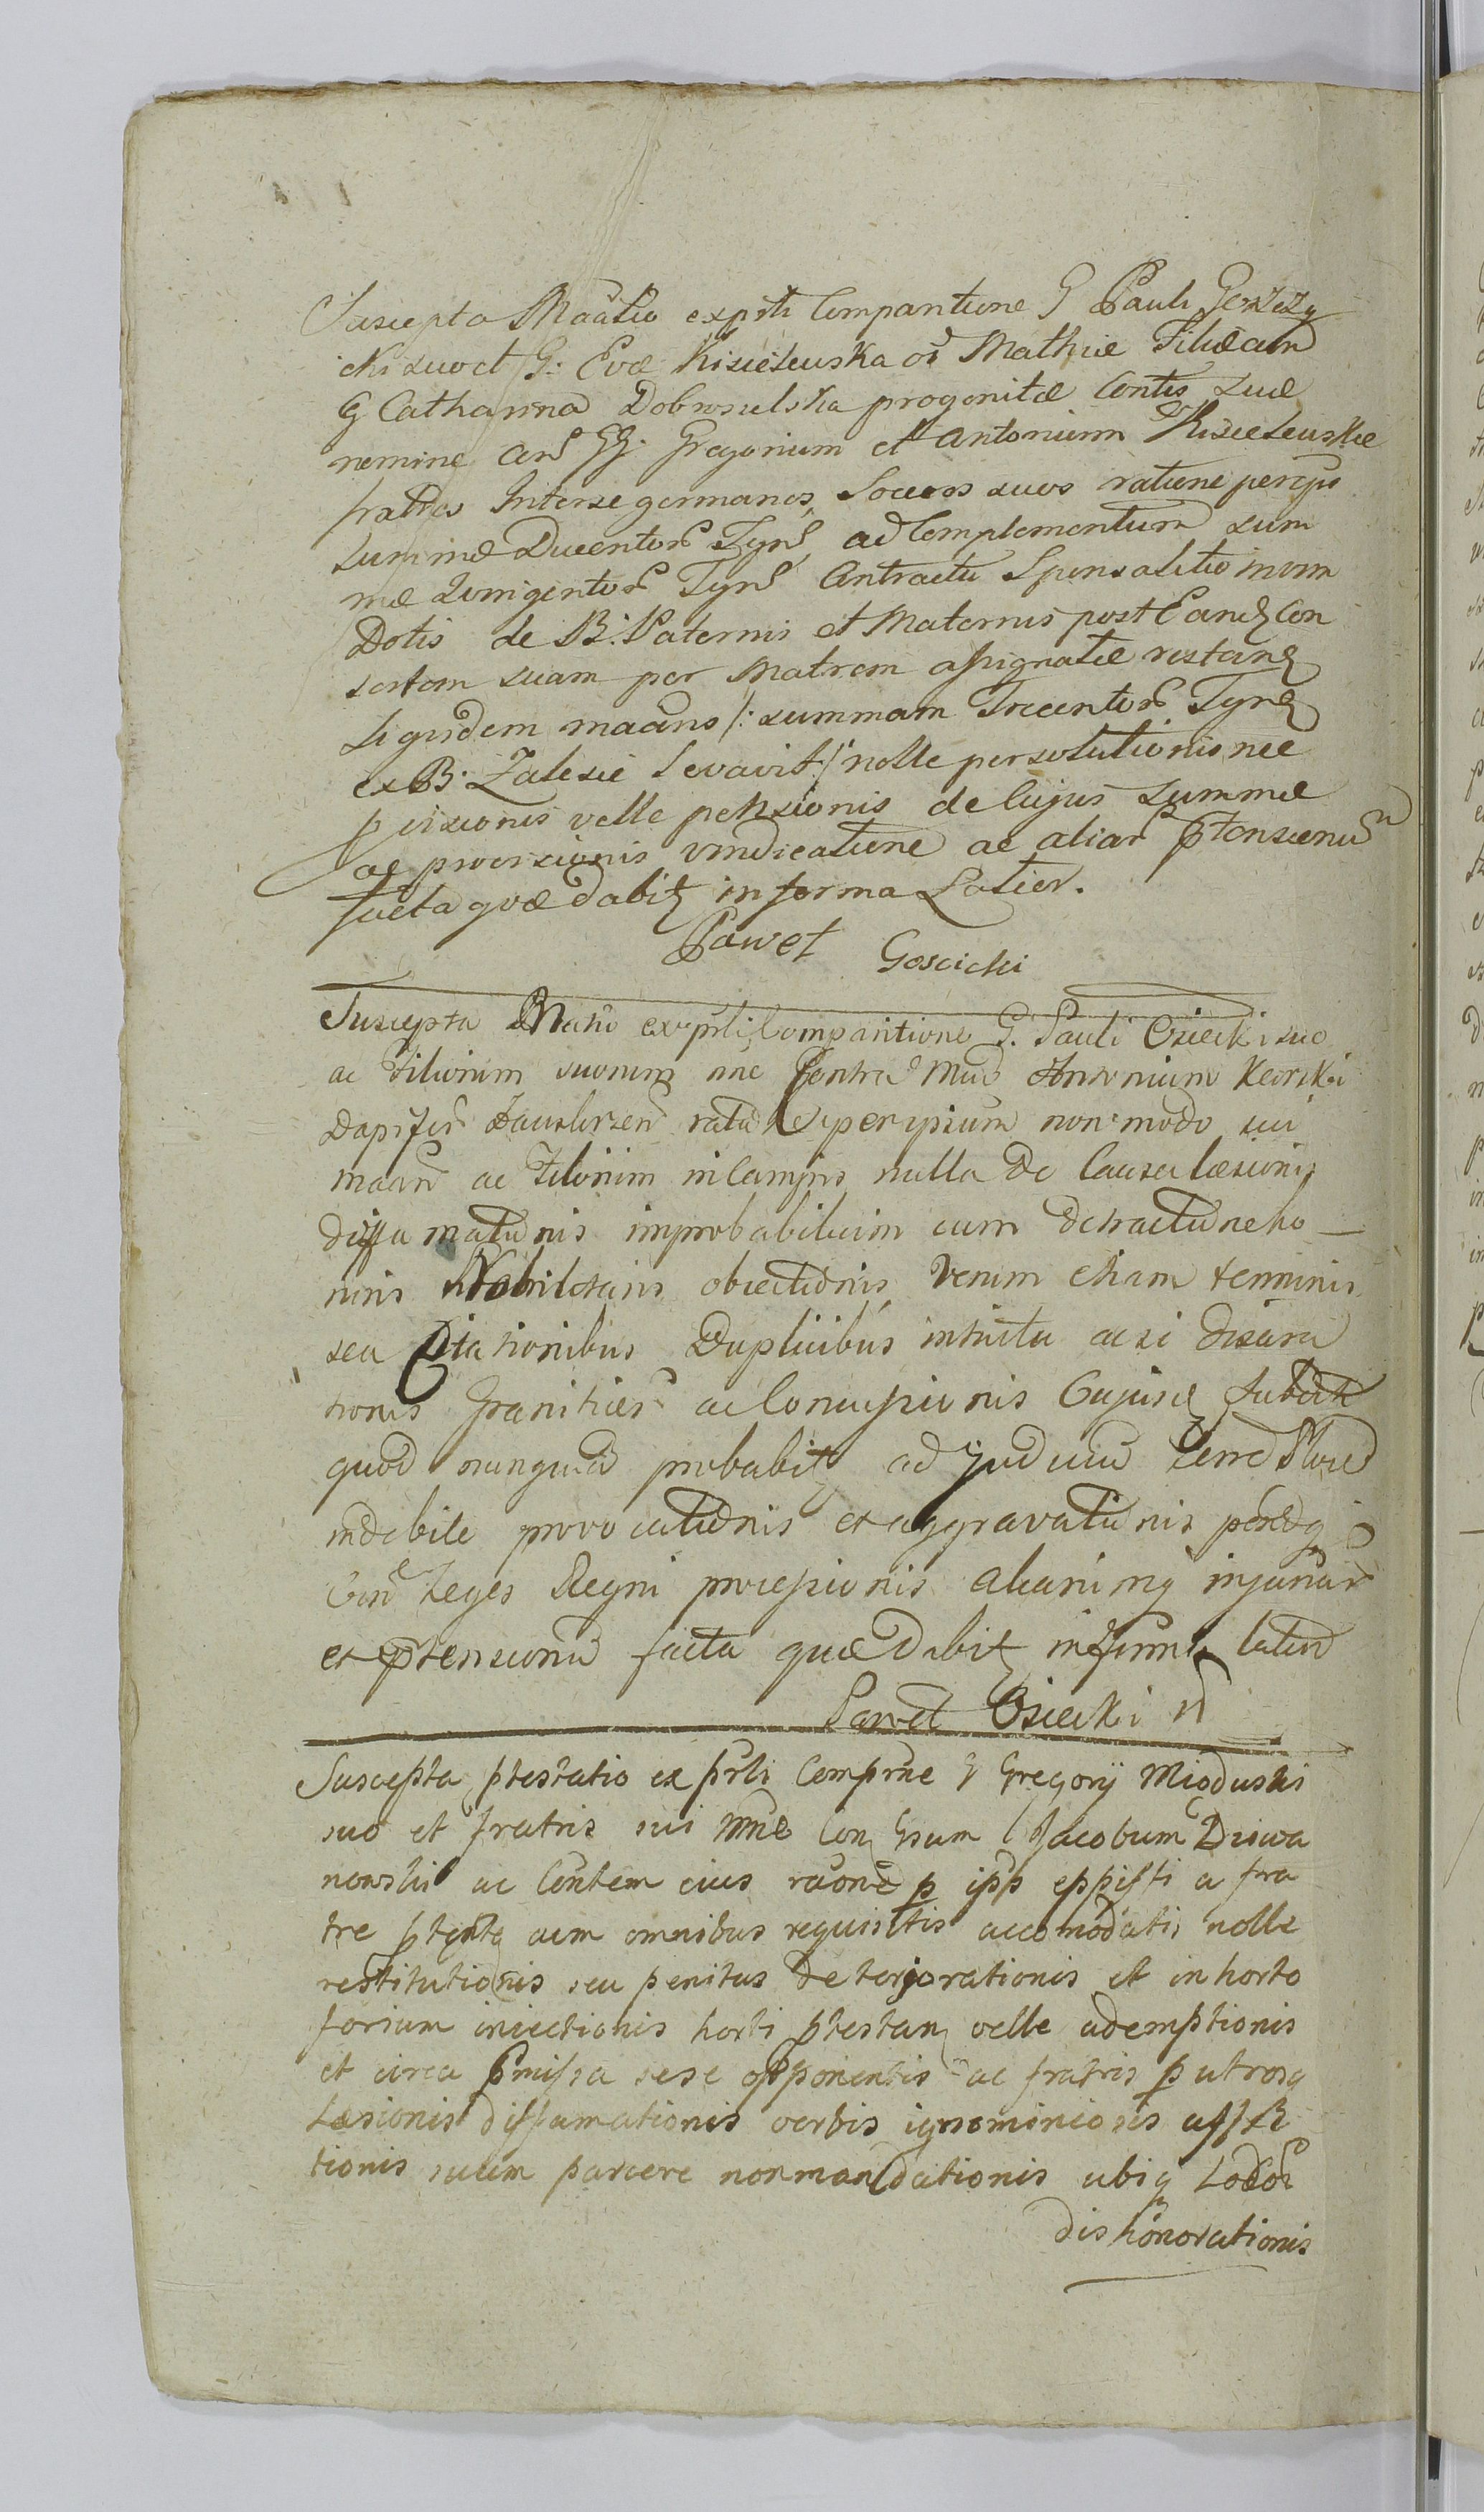 Suscepta Maãtio exprti Compantione G Pauli
cki suo et G: Evæ Kisielewska oĩ Mathiæ Filiæ cum
G Catharina Dobrosielska progenitæ Contis suæ
nemine Con GG. Gregorium et Antonium Kisielewskie
fratres Interse germanos, Soceros suos ratione per ips
summæ Ducentor Tynf ad Complementum sum
mæ Quingentor Tynf Contractu Sponsalitio
Dotis de B: Paternis et Maternis post Eand Con
sortem suam per Matrem assignatæ restan
siquidem maãns /: summam Trecentor Tynf
ex B: Zalesie levavit :/ nolle persolutionis nec
velle pensionis de Cujus Summæ
ac provisionis vindicatione ac aliar ptensionũ
facta quæ dabit in forma Latior.
Paweł Goscicki
Suscepta Matio ex prti Comparitione G. Pauli Osiecki suo
ac Filiorum suorum nne Contra Mud Antonium
Dapifer rata per ipsum non modo sui
maan ac Filiorum in Campis nulla de Causa læsionis
diffamationis improbabilium cum detractione ho
noris Nobilitaris obiectionis, Verum etiam terminis
seu Citationibus Duplicibus intuitu ac si
tionis Granicier ac
quod nunquã probabit ad Judiciũ Terrẽ
indebite provocationis et aggravationis
Con Leges Regni processionis aliarumq injuriar
et ptensionũ facta quæ dabit in forma latior
Paweł Osiecki
Suscepta ptestatio ex prti Comprne G Gregorij Mioduski
suo et fratris sui nne Con Gsum Jacobum Diowa
nowski ac Contem eius raone p ips a fra
tre cum omnibus requisitis accomodati nolle
restitutionis seu penitus deterjorationis et in horto
forsum iniectionis horti ptestan velle ademptionis
et circa pmissa sese opponentis ac fratris p utrosq
Læsionis diffamationis verbis ignominiosis
tionis suum parcere non mandationis ubiq Locor
dishonorationis